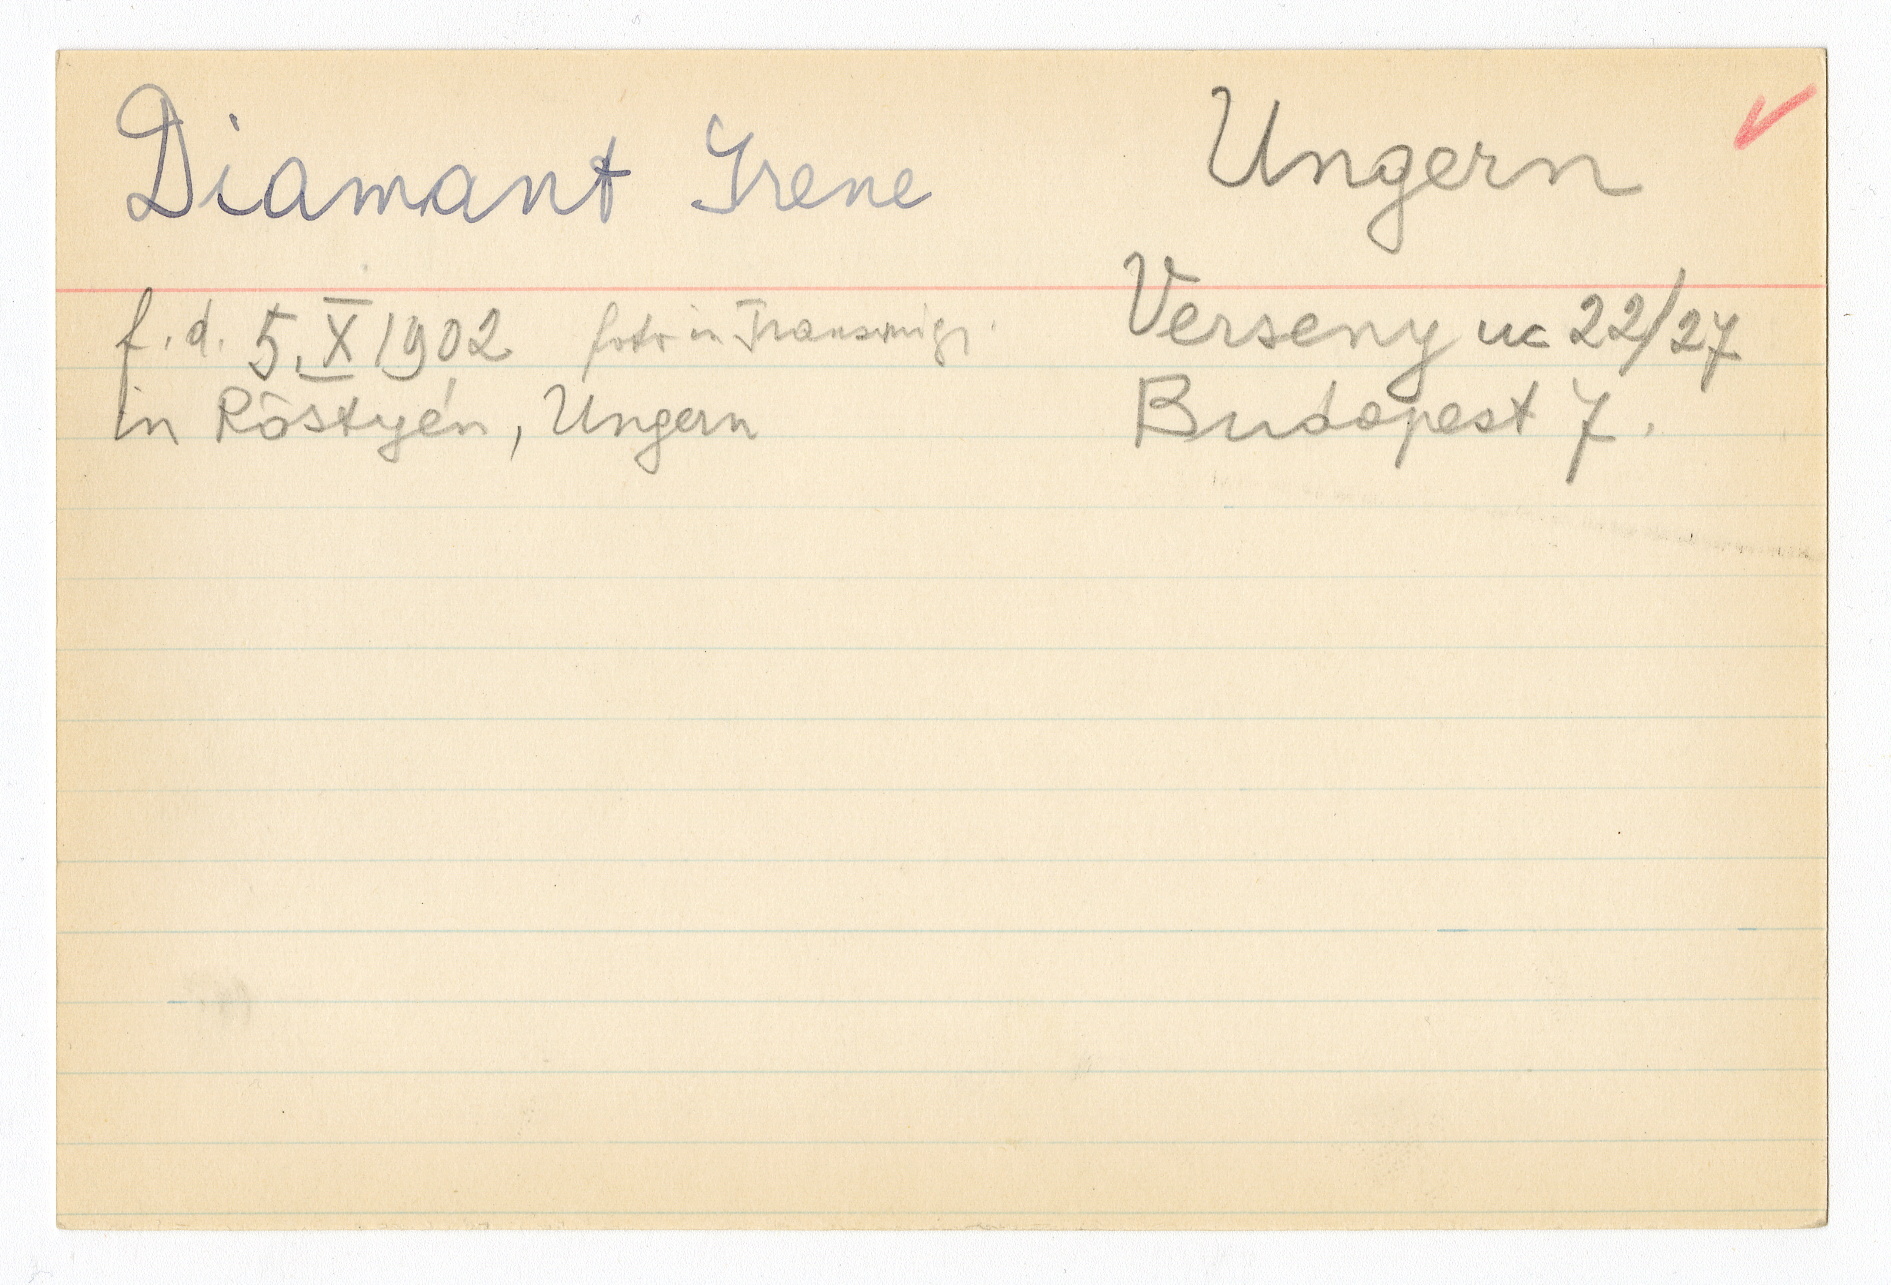 Diamant Irene Ungern
f. d. 5. X 1902 foto in Transmigr. Verseny uc 22/27
in Röstyén, Ungern Budapest 7.